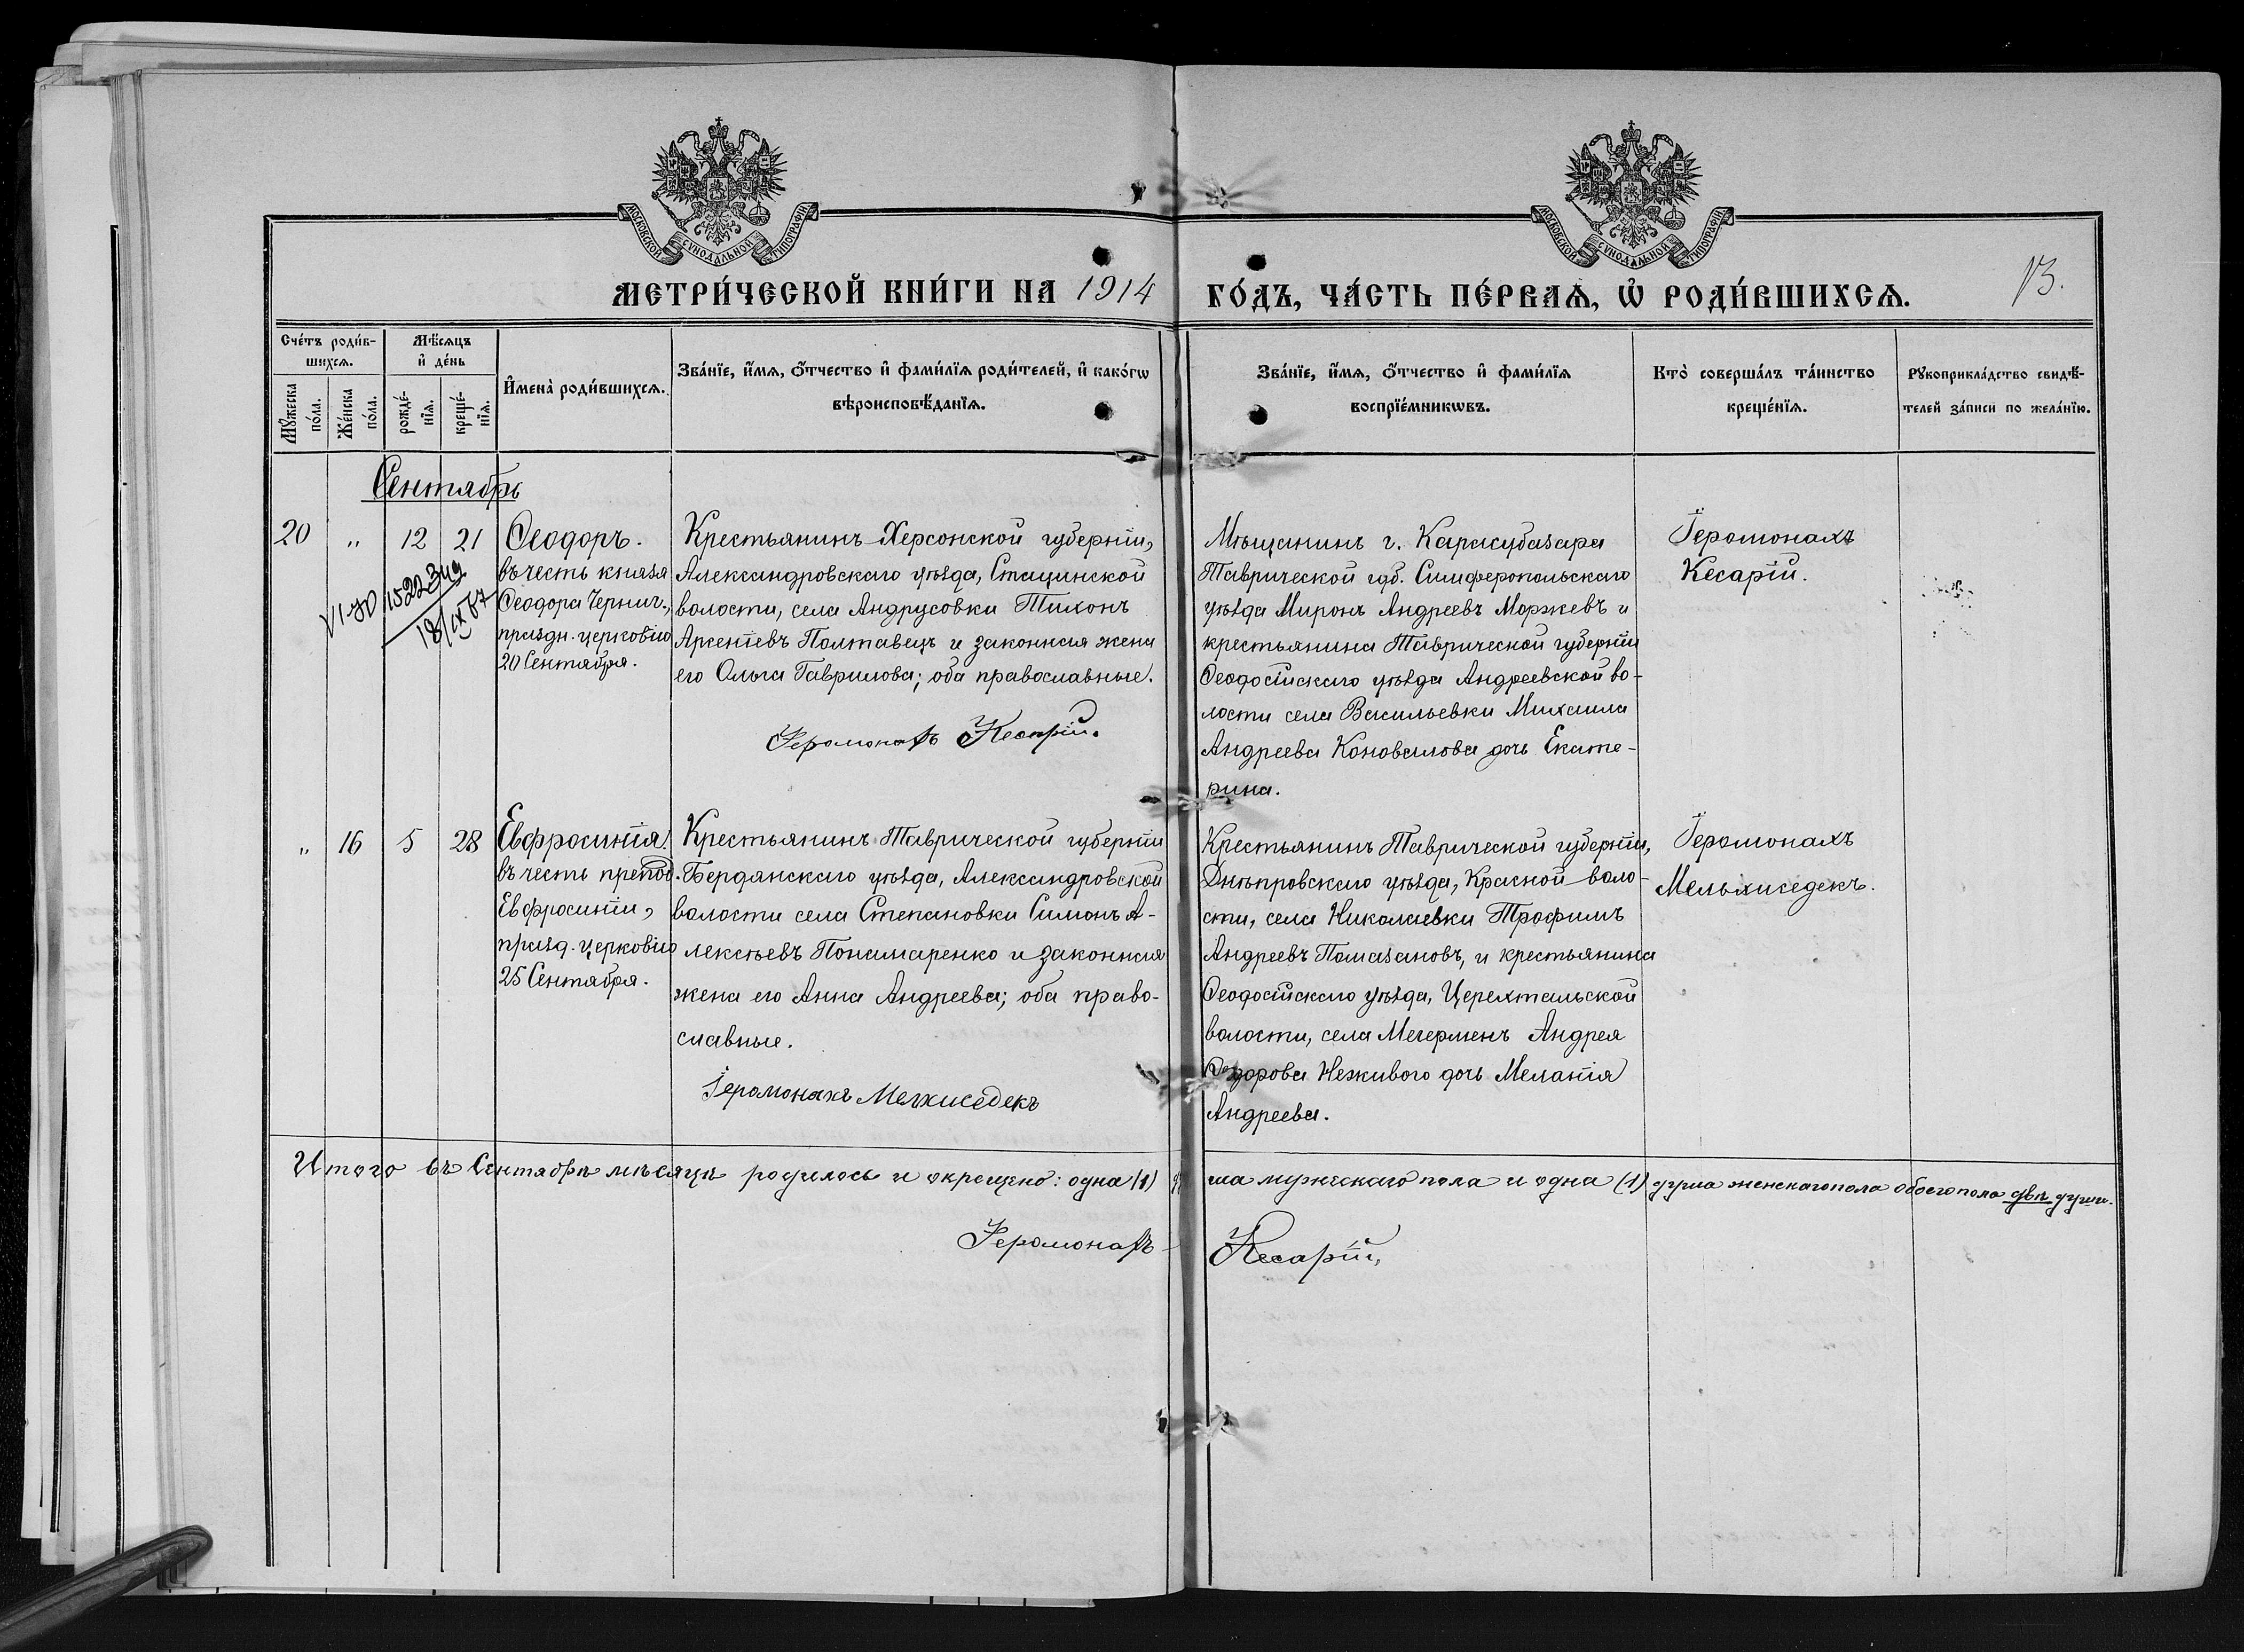 МОСКОВСКОЙ СѴНОДАЛЬНОЙ ТИПОГРАФІИ
МОСКОВСКОЙ СѴНОДАЛЬНОЙ ТИПОГРАФІИ
МЕТРИ́ЧЕСКОЙ КНИ́ГИ НА 1914 ГО́ДЪ, ЧА́СТЬ ПЕ́РВАѦ, Ѡ РОДИ́ВШИХСѦ.
13.
Сче́тъ роди́в-
шихсѧ.
Мѣ́сѧцъ
и҆ де́нь
Мꙋ́жеска
по́ла.
Же́нска
по́ла.
рожде́-
нїѧ.
креще́-
нїѧ.
И҆мена̀ роди́вшихсѧ.
Зва́нїе, и҆́мѧ, ѻ҆́тчество и҆ фами́лїѧ роди́телей, и҆ како́гѡ
вѣроисповѣ́данїѧ.
Зва́нїе, и҆́мѧ, ѻ҆́тчество и҆ фами́лїѧ
воспрїе́мникѡвъ.
Кто̀ соверша́лъ та́инство
креще́нїѧ.
Рꙋкоприкла́дство свидѣ́-
телей за́писи по жела́нїю.
Сентябрь
20 " 12 21
Ѳеодоръ.
въ честь князя
Ѳеодора Черниг.,
праздн. церковію
20 Сентября.
VI-ЯО 1522342
18/IX 67
Крестьянинъ Херсонской губерніи,
Александровскаго уѣзда, Стацинской
волости, села Андрусовки Тихонъ
Арсеніевъ Полтавецъ и законная жена
его Ольга Гаврилова; оба православные.
Іеромонахъ Кесарій.
Мѣщанинъ г. Карасубазара
Таврической губ. Симферопольскаго
уѣзда Миронъ Андреевъ Моржевъ и
крестьянина Таврической губерніи
Ѳеодосійскаго уѣзда Андреевской во-
лости села Васильевки Михаила
Андреева Коновалова дочь Екате-
рина.
Іеромонахъ
Кесарій.
" 16 5 28
Евфросинія.
въ честь препод.
Евфросиніи,
празд. церковію
25 Сентября.
Крестьянинъ Таврической губерніи
Бердянскаго уѣзда, Александровской
волости села Степановки Симонъ А-
лексѣевъ Понамаренко и законная
жена его Анна Андреева; оба право-
славные.
Іеромонахъ Мелхиседекъ
Крестьянинъ Таврической губерніи,
Днѣпровскаго уѣзда, Красной воло-
сти, села Николаевки Трофимъ
Андреевъ Помазановъ, и крестьянина
Ѳеодосійскаго уѣзда, Цереxтальской
волости, села Мегерменъ Андрея
Ѳедорова Неживого дочь Меланія
Андреева.
Іеромонахъ
Мельхиседекъ.
Итого въ Сентябрѣ мѣсяцѣ родилось и окрещено: одна (1) ду ша мужескаго пола и одна (1) душа женскаго пола обоего пола двѣ души.
Іеромонахъ Кесарій,